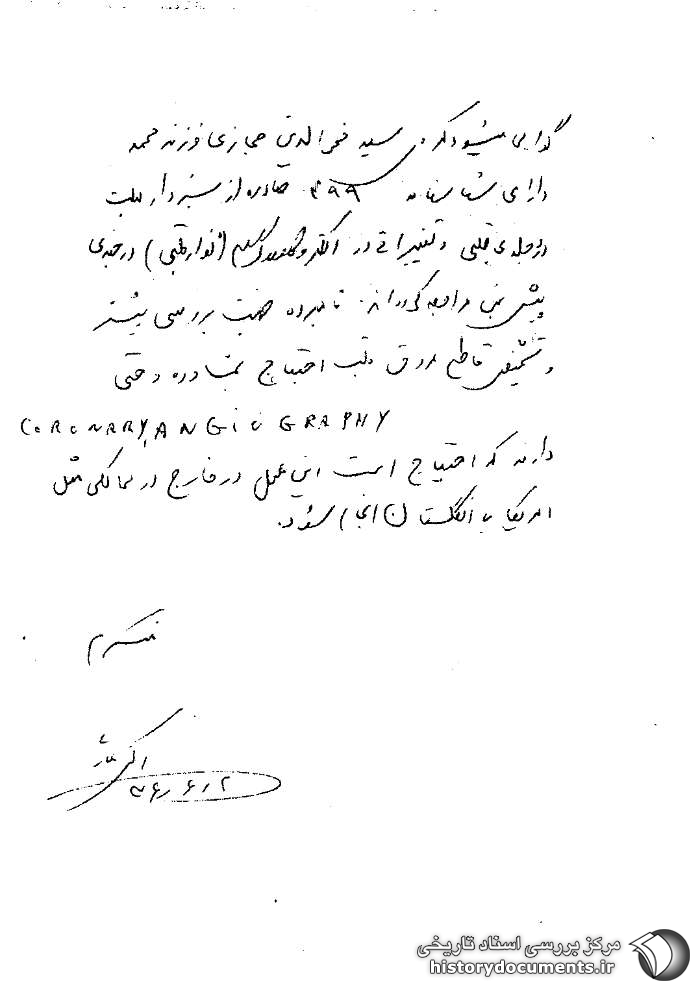 گواهی میشود که آقای سید فخرالدین حجازی فرزند محمد
دارای شناسنامه ۳۹۹ صادره از سبزوار بعلت
قلبی و تغییراتی در (نوار قلبی) در چندی
پیش بمن مراجعه کرده‌اند. نامبرده جهت بررسی بیشتر
و تشخیص قاطع عروق قلب احتیاج بمشاوره و حتی
CORONARY ANGIOGRAPHY
دارند که احتیاج است این عمل در خارج در ممالکی مثل
امریکا یا انگلستان انجام شود.
۳۶/۶/۲
مرکز بررسی اسناد تاریخی
historydocuments.ir